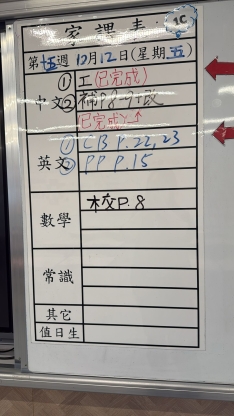 家課表 15
第十五週 12月12日(星期五)
中文 ① 工(已完成)
② 補P.8-9+改
(已完成)↑
英文 ① CB P.22, 23
② PP P.15
數學 校P.8
常識
其它
值日生